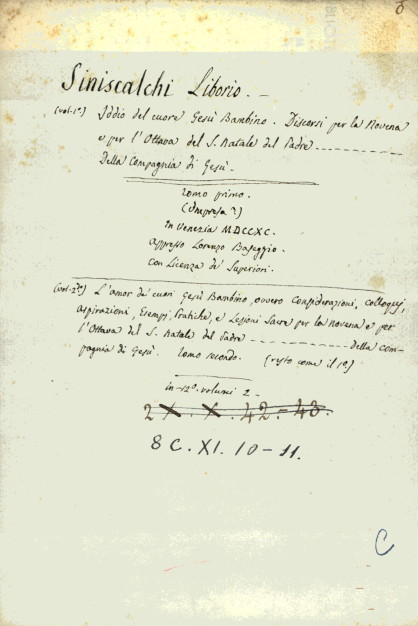 Siniscalchi Liborio. —
(vol-1º) Iddio del cuore Gesù Bambino. Discorsi per la Novena
e per l'Ottava del S. Natale del Padre ---------
Della Compagnia di Gesù.
tomo primo.
(Impresa?)
In Venezia MDCCXC.
appresso Lorenzo Baseggio.
con Licenza de' Superiori.
(vol-2º) L'amor de' cuori Gesù Bambino, ovvero Considerazioni, colloqui,
aspirazioni, Esempj, Pratiche, e Lezioni Sacre per la novena e per
l'Ottava del S. Natale del Padre --------- della com-
pagnia di Gesù. tomo secondo. (resto come il 1º)
in-12º volumi 2 -
2 X. X. 42-43.
8 C. XI. 10-11.
C